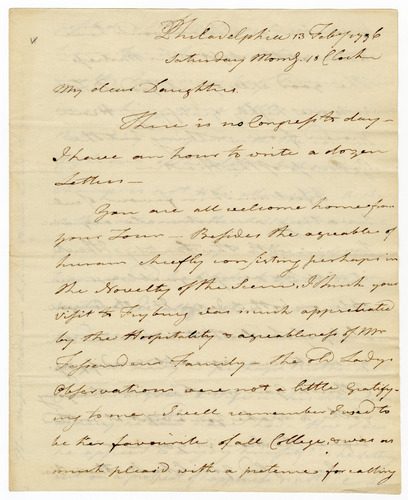 Philadelphia 13 Feby 1796
Saturday Morng. 10 Clock
My dear Daughters
There is no Congress to day—
I have an hour to write a dozen
Letters—
You are all welcome home from
your Tour— Besides the agreeable of
chiefly consisting perhaps in
the Novelty of the Scene, I think your
visit to Fryburg was much appretiated
by the Hospitality & agreableness of Mr
Fessendens Family— the old Ladys
Observations were not a little gratify-
ing to me— I well remember I used to
be her favourite of all College, & was as
much pleas'd with a pretence for calling